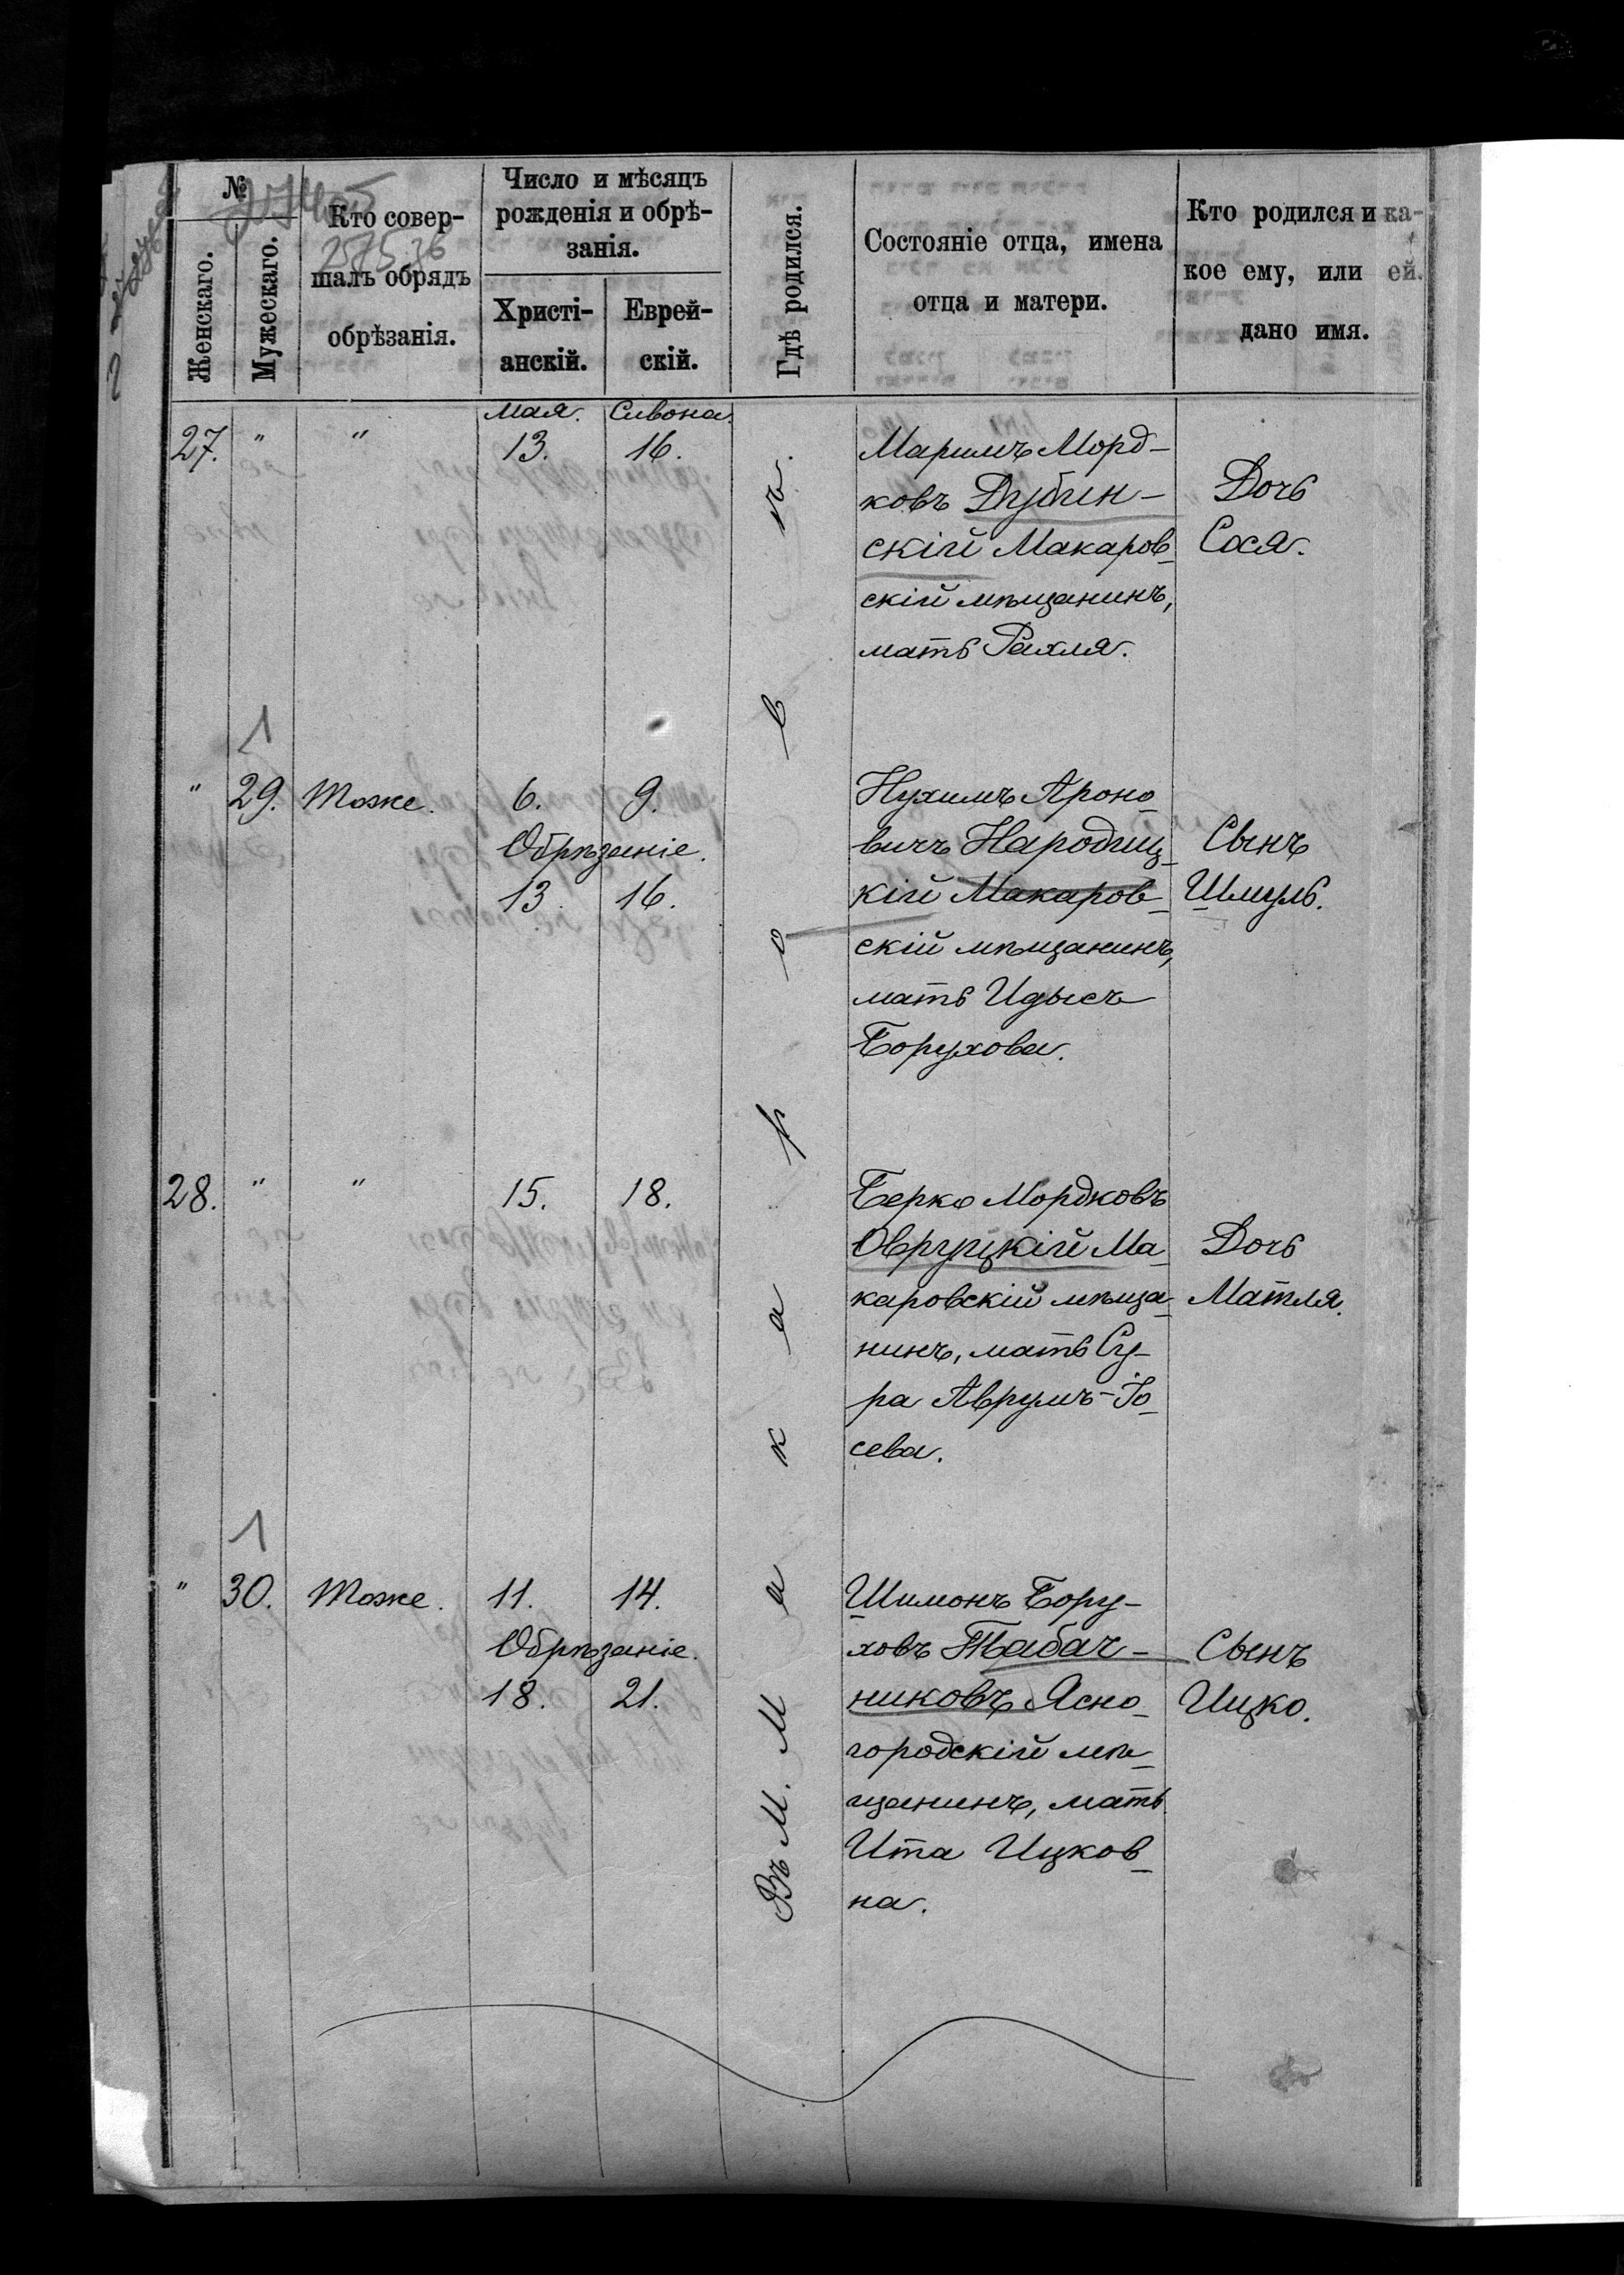 №
Женскаго.
Мужескаго.
Кто совер-
шалъ обрядъ
обрѣзанія.
Число и мѣсяцъ
рожденія и обрѣ-
занія.
Христі-
анскій.
Еврей-
скій.
Гдѣ родился.
Состояніе отца, имена
отца и матери.
Кто родился и ка-
кое ему, или ей.
дано имя.
Въ М. Макаровъ.
Мая. Сивона.
27. " " 13. 16.
Маримъ Морд-
ковъ Дубин-
скій Макаров-
скій мѣщанинъ,
мать Рахля.
Дочь
Сося.
1
" 29. Тоже. 6. 9.
Обрѣзаніе.
13. 16.
Нухимъ Ароно-
вичъ Народиц-
кій Макаров-
скій мѣщанинъ,
мать Идысъ
Борухова.
Сынъ
Шмуль.
28. " " 15. 18.
Берко Мордковъ
Овруцкій Ма-
каровскій мѣща-
нинъ, мать Су-
ра Аврумъ-Іо-
сева.
Дочь
Матля.
1
" 30. Тоже. 11. 14.
Обрѣзаніе.
18. 21.
Шимонъ Бору-
ховъ Табач-
никовъ Ясно-
городскій мѣ-
щанинъ, мать
Ита Ицков-
на.
Сынъ
Ицко.